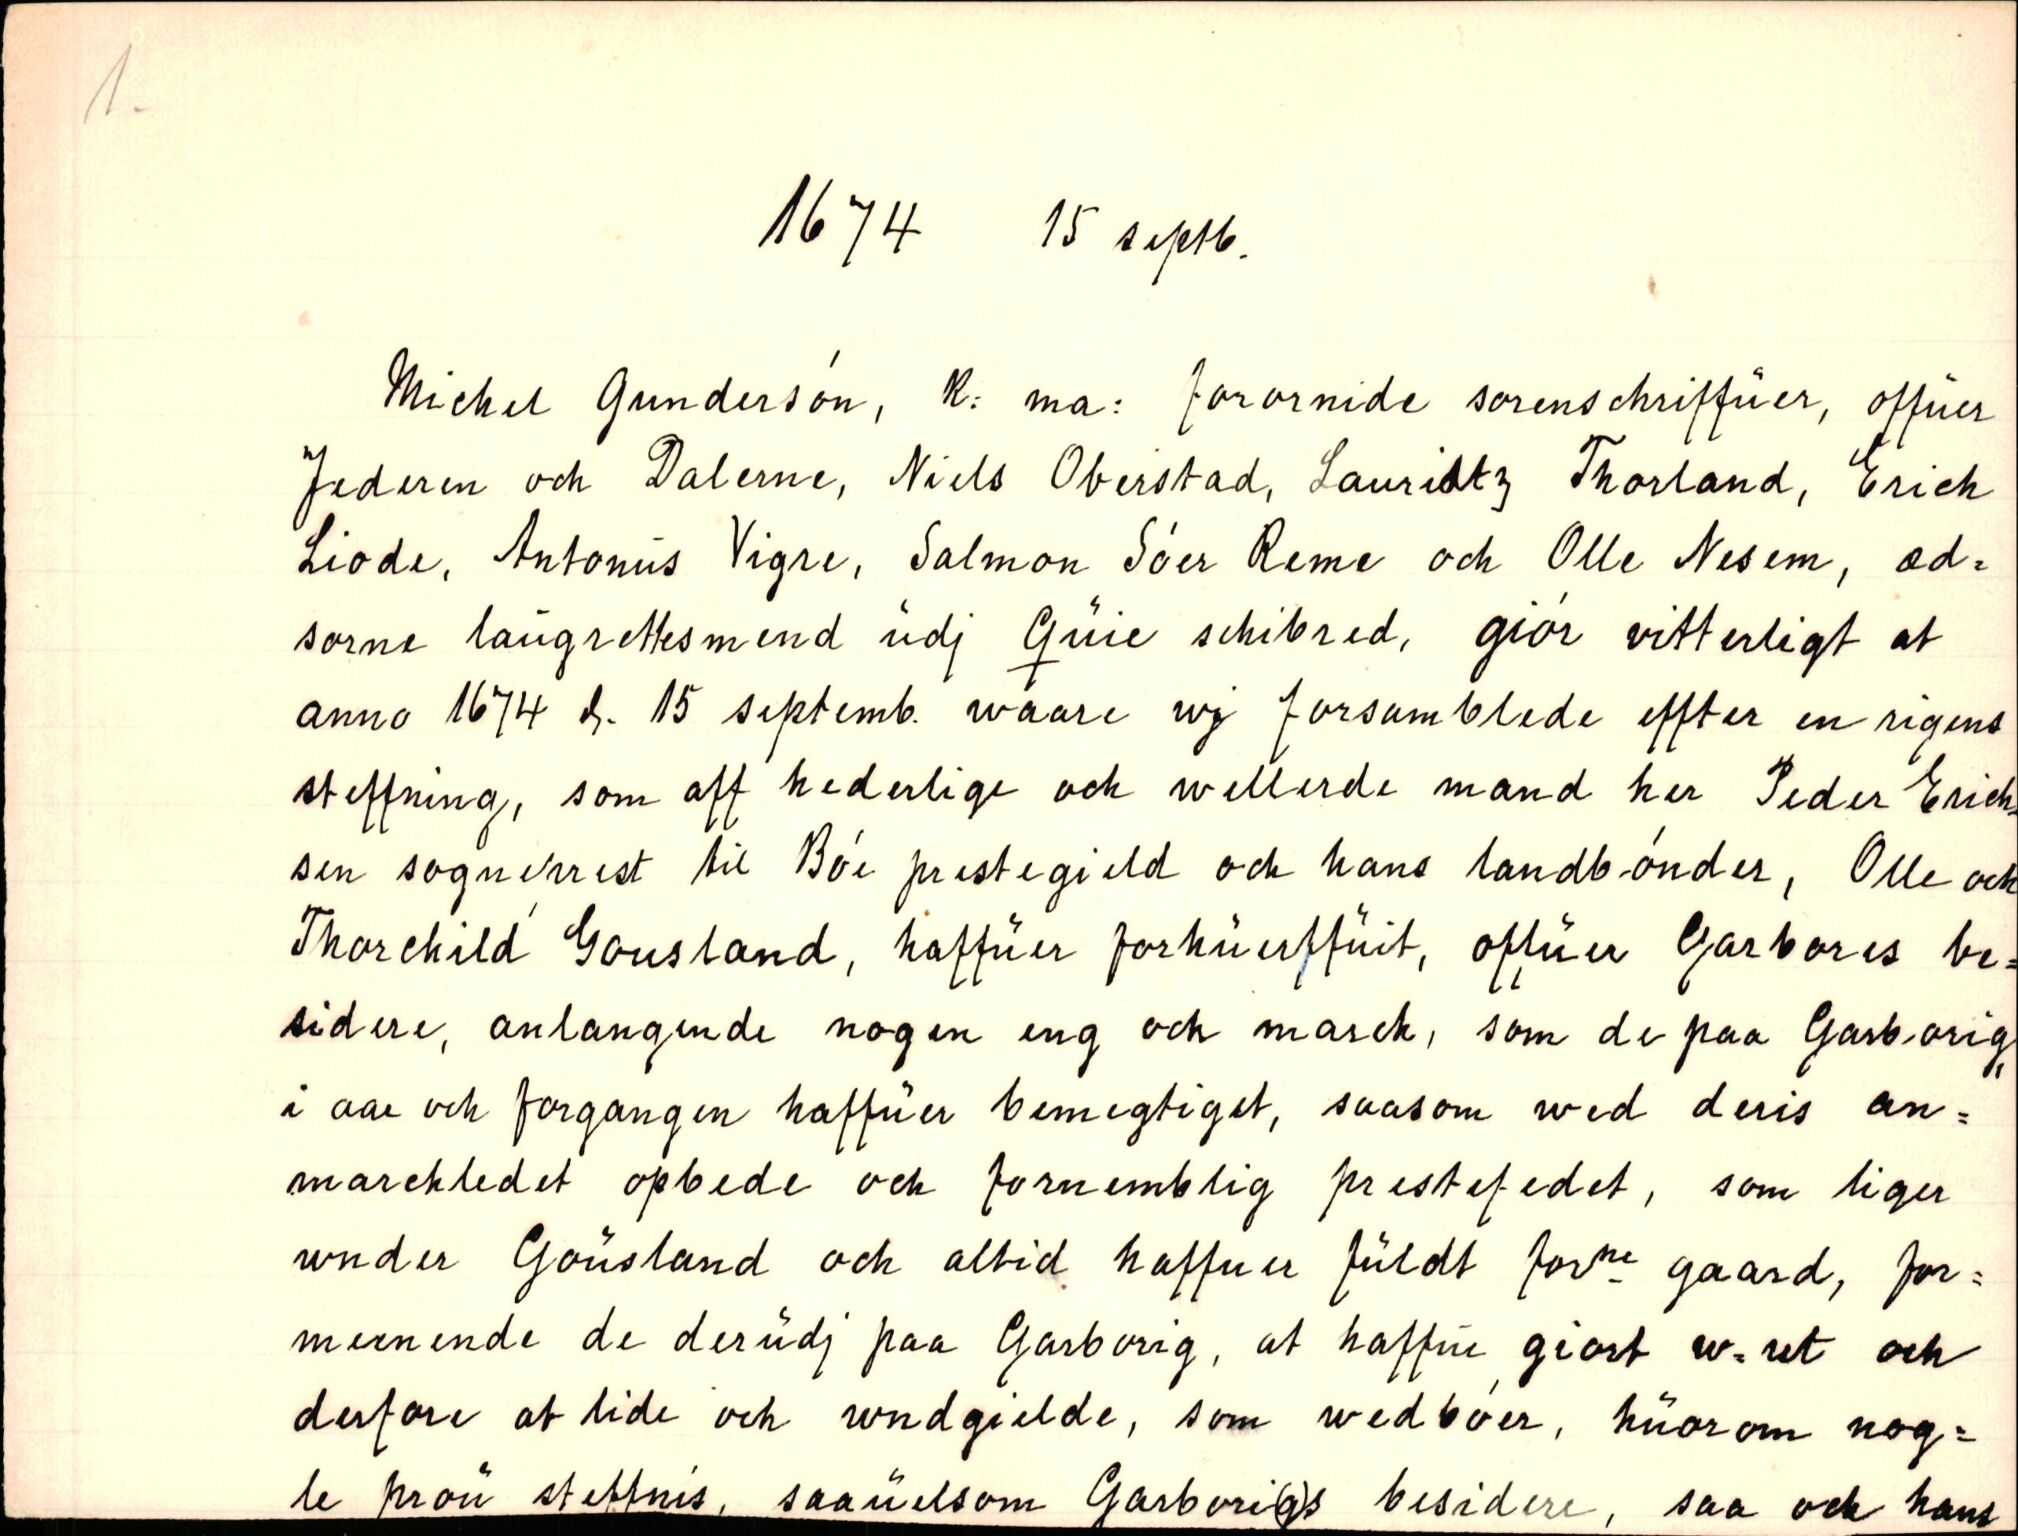 1.
1674 15 septb.
Michel Gundersón, K: ma: forornide sorenschriffüer, offüer
Jederen och Dalerne, Niels Oberstad, Lauridtz Thorland, Erich
Liode, Antonüs Vigre, Salmon Sóer Reme och Olle Nesem, æd=
sorne laügrettesmend üdj Qüie schibred, giór vitterligt at
anno 1674 d. 15 septemb. waare wj forsamblede effter en rigens
steffning, som aff hederlige och wellerde mand her Peder Erich=
sen sogneprest til Bóe prestegield och hans landbónder, Olle och
Thorchild Gousland, haffüer forhüerffüit, offüer Garbores be=
sidere, anlangende nogen eng och marck, som de paa Garborig,
i aar och forgangen haffüer bemegtiget, saasom wed deris an=
marckledet opbede och fornemblig prestefedet, som liger
wnder Goüsland och altid haffuer füldt forne gaard, for=
meenende de derüdj paa Garborig, at haffüe giort w=ret och
derfore at lide och wndgielde, som wedbóer, hüorom nog=
le proü steffnis, saaüelsom Garbori(g)s besidere, saa och hans